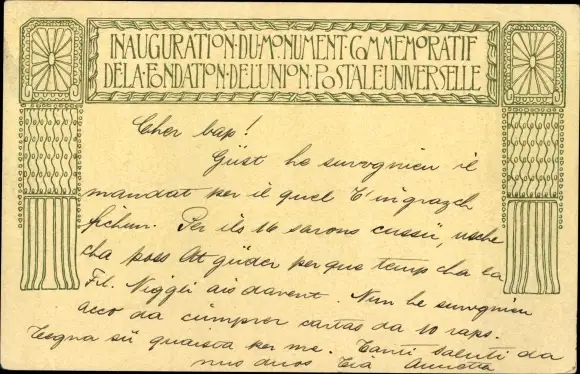 INAUGURATION·DU·MONUMENT·COMMEMORATIF
DE·LA·FONDATION·DE·L'UNION·POSTALE·UNIVERSELLE
Cher bap!
Güst he survgnieu il
mandat per il quel t'ingrazch
fichun. Per ils 16 sarons cussü, usche
cha poss At güder per que temp cha la
Frl. Niggli ais davent. Nun he survgnieu
acco da cumprer cartas da 10 raps.
Tegna sü quaista per me. Tanti saluti da
nus duos Tia Annetta